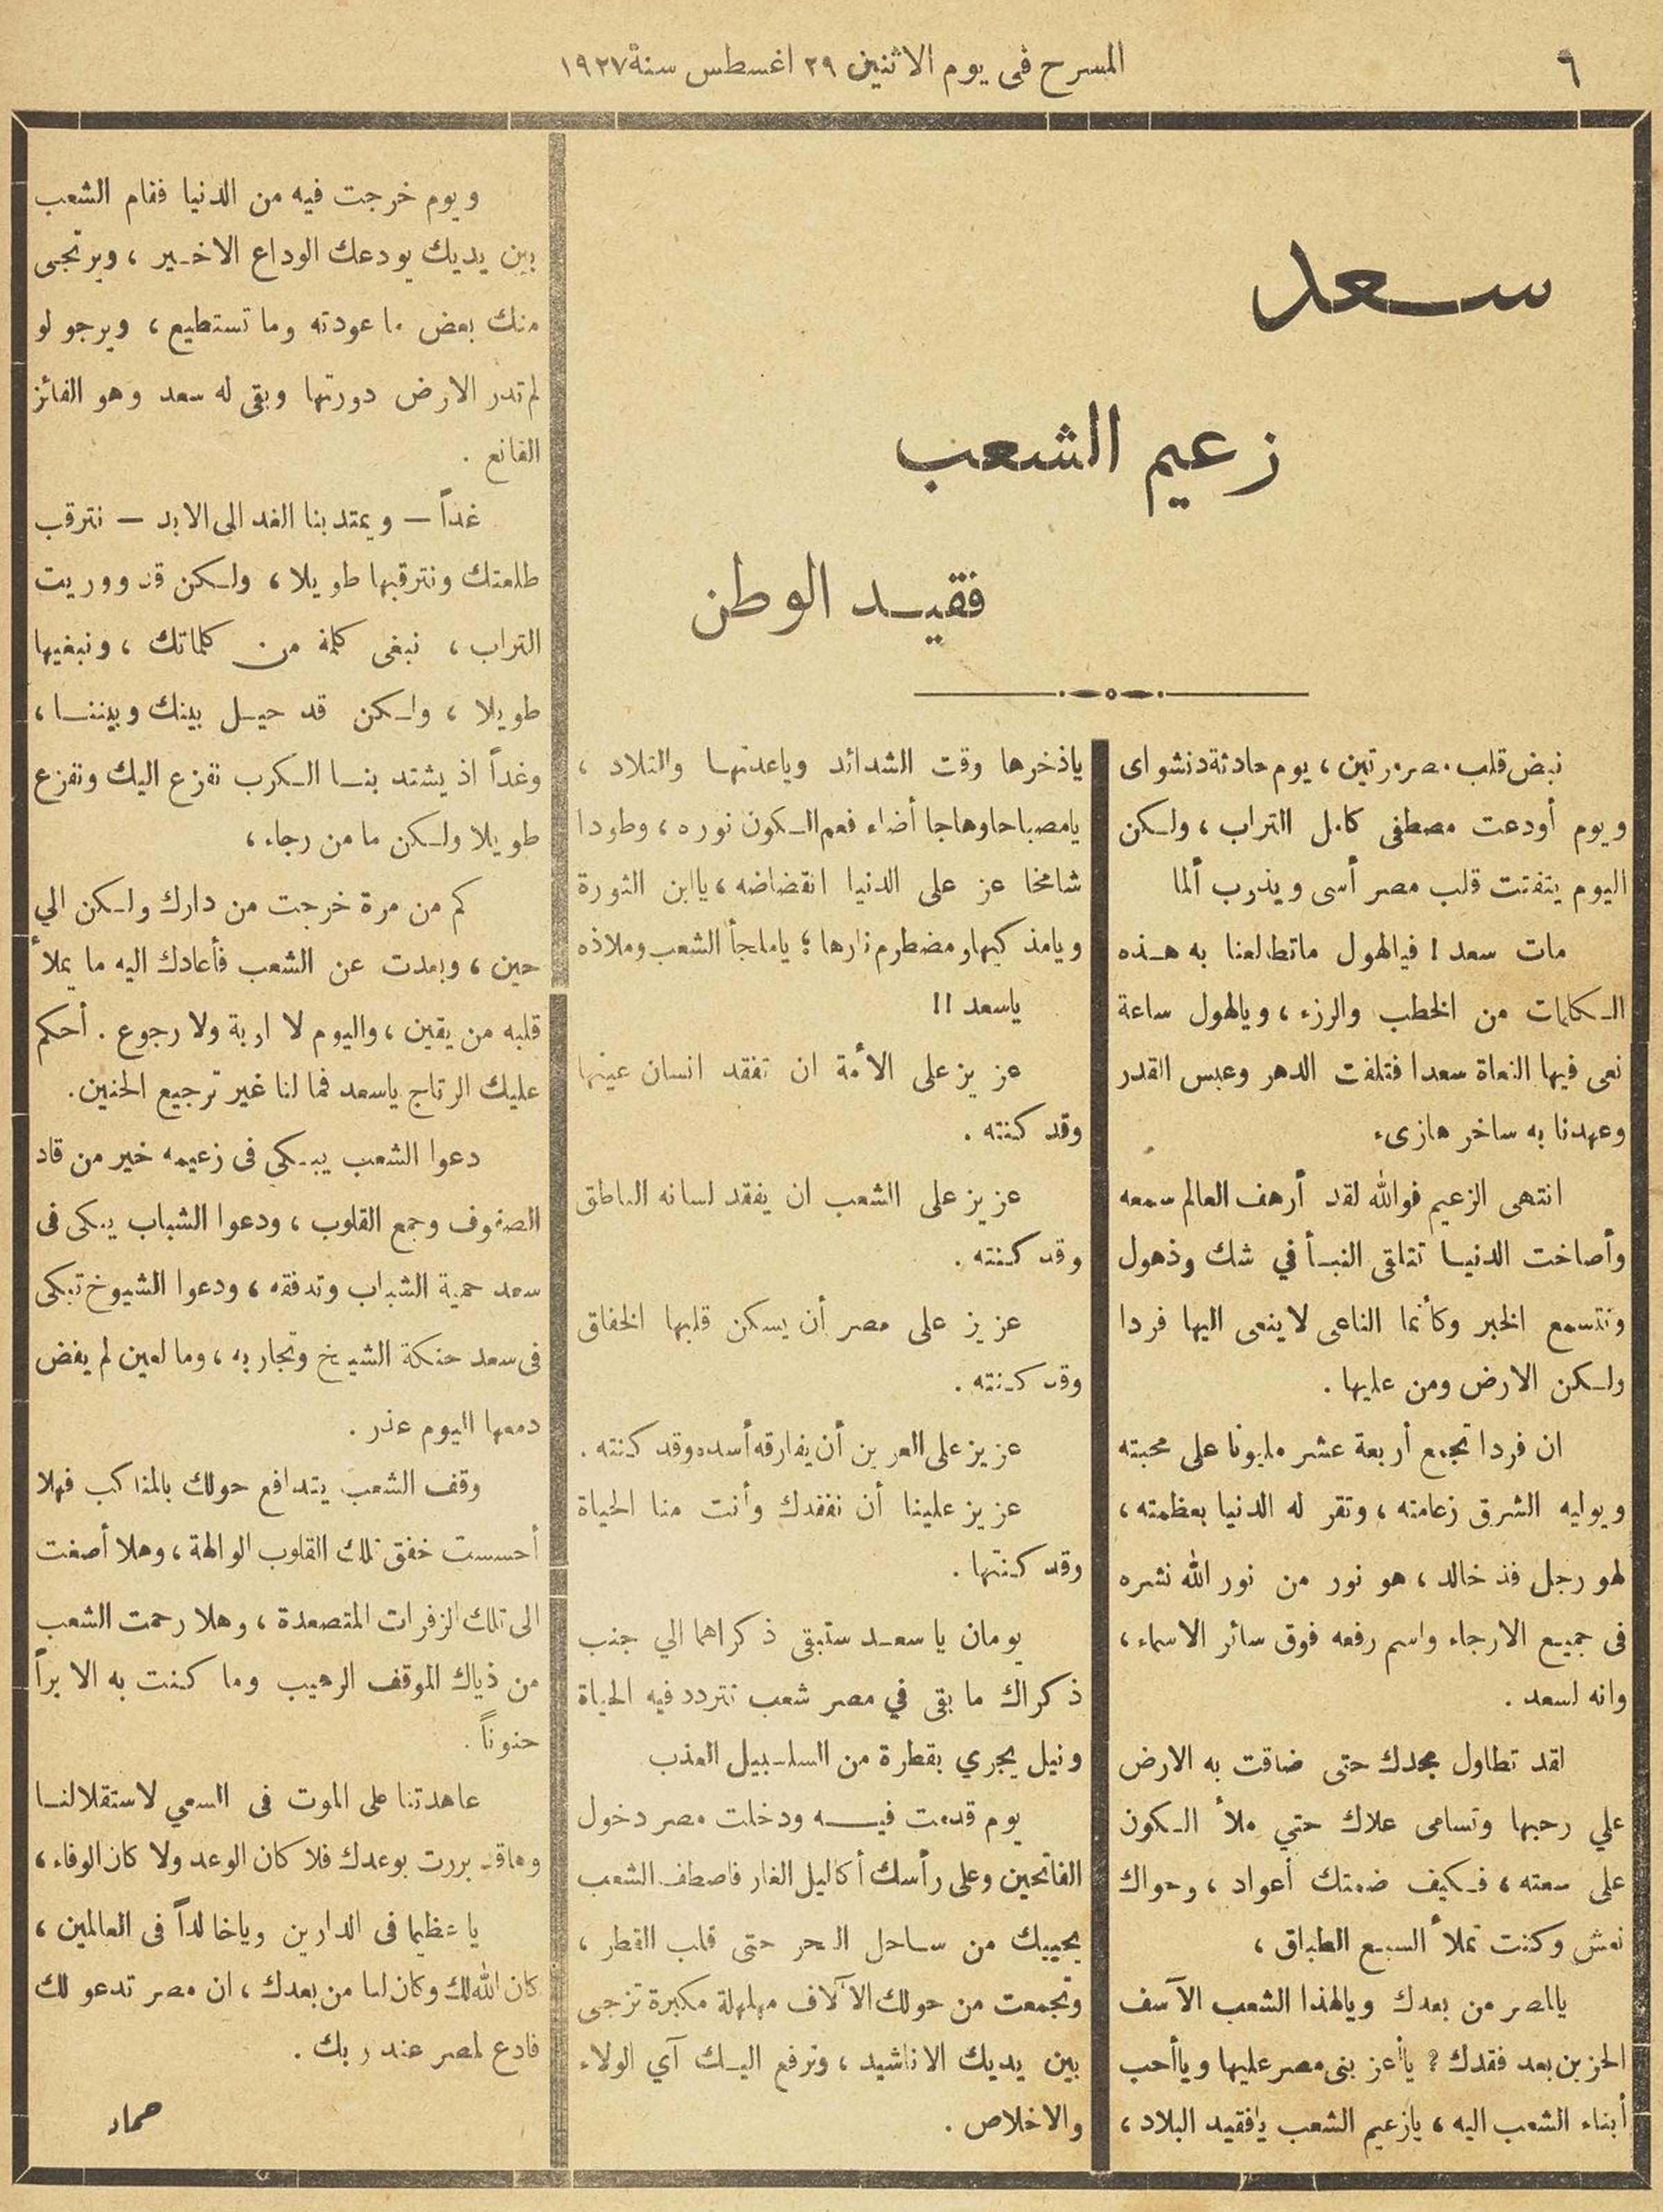 ٦
المسرح فى يوم الاثنين ٢٩ اغسطس سنة ١٩٢٧
سعد
زعيم الشعب
فقيد الوطن
نبض قلب مصر مرتين، يوم حادثة دنشواى
ويوم أودعت مصطفى كامل التراب، ولكن
اليوم يتفتت قلب مصر أسى ويذوب ألما
مات سعد ! فيالهول ماتطالعنا به هذه
الكلمات من الخطب والرزء، ويالهول ساعة
نعى فيها النعاة سعدا فتلفت الدهر وعبس القدر
وعهدنا به ساخر هازىء
انتهى الزعيم فوالله لقد أرهف العالم سمعه
وأصاخت الدنيا تتلقى النبأ في شك وذهول
وتتسمع الخبر وكأنما الناعى لاينعى اليها فردا
ولكن الارض ومن عليها .
ان فردا تجمع أربعة عشر مليونا على محبته
ويوليه الشرق زعامته، وتقر له الدنيا بعظمته،
لهو رجل فذ خالد، هو نور من نور الله نشره
فى جميع الارجاء واسم رفعه فوق سائر الاسماء،
وانه لسعد .
لقد تطاول مجدك حتى ضاقت به الارض
علي رحبها وتسامى علاك حتي ملأ الكون
على سعته، فكيف ضمتك أعواد، وحواك
نعش وكنت تملأ السبع الطباق،
يالمصر من بعدك ويالهذا الشعب الآسف
الحزين بعد فقدك ؟ ياأعز بنى مصر عليها وياأحب
أبناء الشعب اليه، يازعيم الشعب يافقيد البلاد،
ياذخرها وقت الشدائد وياعدتها والتلاد،
يامصباحا وهاجا أضاء فعم الكون نوره، وطودا
شامخا عز على الدنيا انقضاضه، ياابن الثورة
ويامذكيها ومضطرم نارها ؛ ياملجأ الشعب وملاذه
ياسعد !!
عزيز على الأمة ان تفقد انسان عينها
وقد كنته .
عزيز على الشعب ان يفقد لسانه الناطق
وقد كنته .
عزيز على مصر أن يسكن قلبها الخفاق
وقد كنته .
عزيز على العرين أن يفارقه أسده وقد كنته .
عزيز علينا أن نفقدك وأنت منا الحياة
وقد كنتها .
يومان يا سعد ستبقى ذكراهما الي جنب
ذكراك ما بقى في مصر شعب تتردد فيه الحياة
ونيل يجري بقطرة من السلسبيل العذب
يوم قدمت فيه ودخلت مصر دخول
الفاتحين وعلى رأسك أكاليل الغار فاصطف الشعب
يحييك من ساحل البحر حتى قلب القطر،
وتجمعت من حولك الآلاف مهلهلة مكبرة تزجى
بين يديك الاناشيد، وترفع اليك آي الولاء
والاخلاص .
ويوم خرجت فيه من الدنيا فقام الشعب
بين يديك يودعك الوداع الاخير، ويرتجى
منك بعض ما عودته وما تستطيع، ويرجو لو
لم تدر الارض دورتها وبقى له سعد وهو الفائز
القانع .
غداً — ويمتد بنا الغد الى الابد — نترقب
طلعتك ونترقبها طويلا، ولكن قد ووريت
التراب، نبغى كلمة من كلماتك، ونبغيها
طويلا، ولكن قد حيل بينك وبيننا،
وغداً اذ يشتد بنا الكرب نفزع اليك ونفزع
طويلا ولكن ما من رجاء،
كم من مرة خرجت من دارك ولكن الي
حين، وبعدت عن الشعب فأعادك اليه ما يملأ
قلبه من يقين، واليوم لا اوبة ولا رجوع . أحكم
عليك الرتاج ياسعد فما لنا غير ترجيع الحنين.
دعوا الشعب يبكى فى زعيمه خير من قاد
الصفوف وجمع القلوب، ودعوا الشباب يبكى فى
سعد حمية الشباب وتدفقه، ودعوا الشيوخ تبكى
فى سعد حنكة الشيخ وتجاربه، وما لعين لم يفض
دمعها اليوم عذر .
وقف الشعب يتدافع حولك بالمناكب فهلا
أحسست خفق تلك القلوب الوالهة، وهلا أصغت
الى تلك الزفرات المتصعدة، وهلا رحمت الشعب
من ذياك الموقف الرهيب وما كنت به الا براً
حنوناً .
عاهدتنا على الموت فى السعي لاستقلالنا
وهاقد بررت بوعدك فلا كان الوعد ولا كان الوفاء،
يا عظيما فى الدارين وياخالداً فى العالمين،
كان الله لك وكان لنا من بعدك، ان مصر تدعو لك
فادع لمصر عند ربك .
حماد